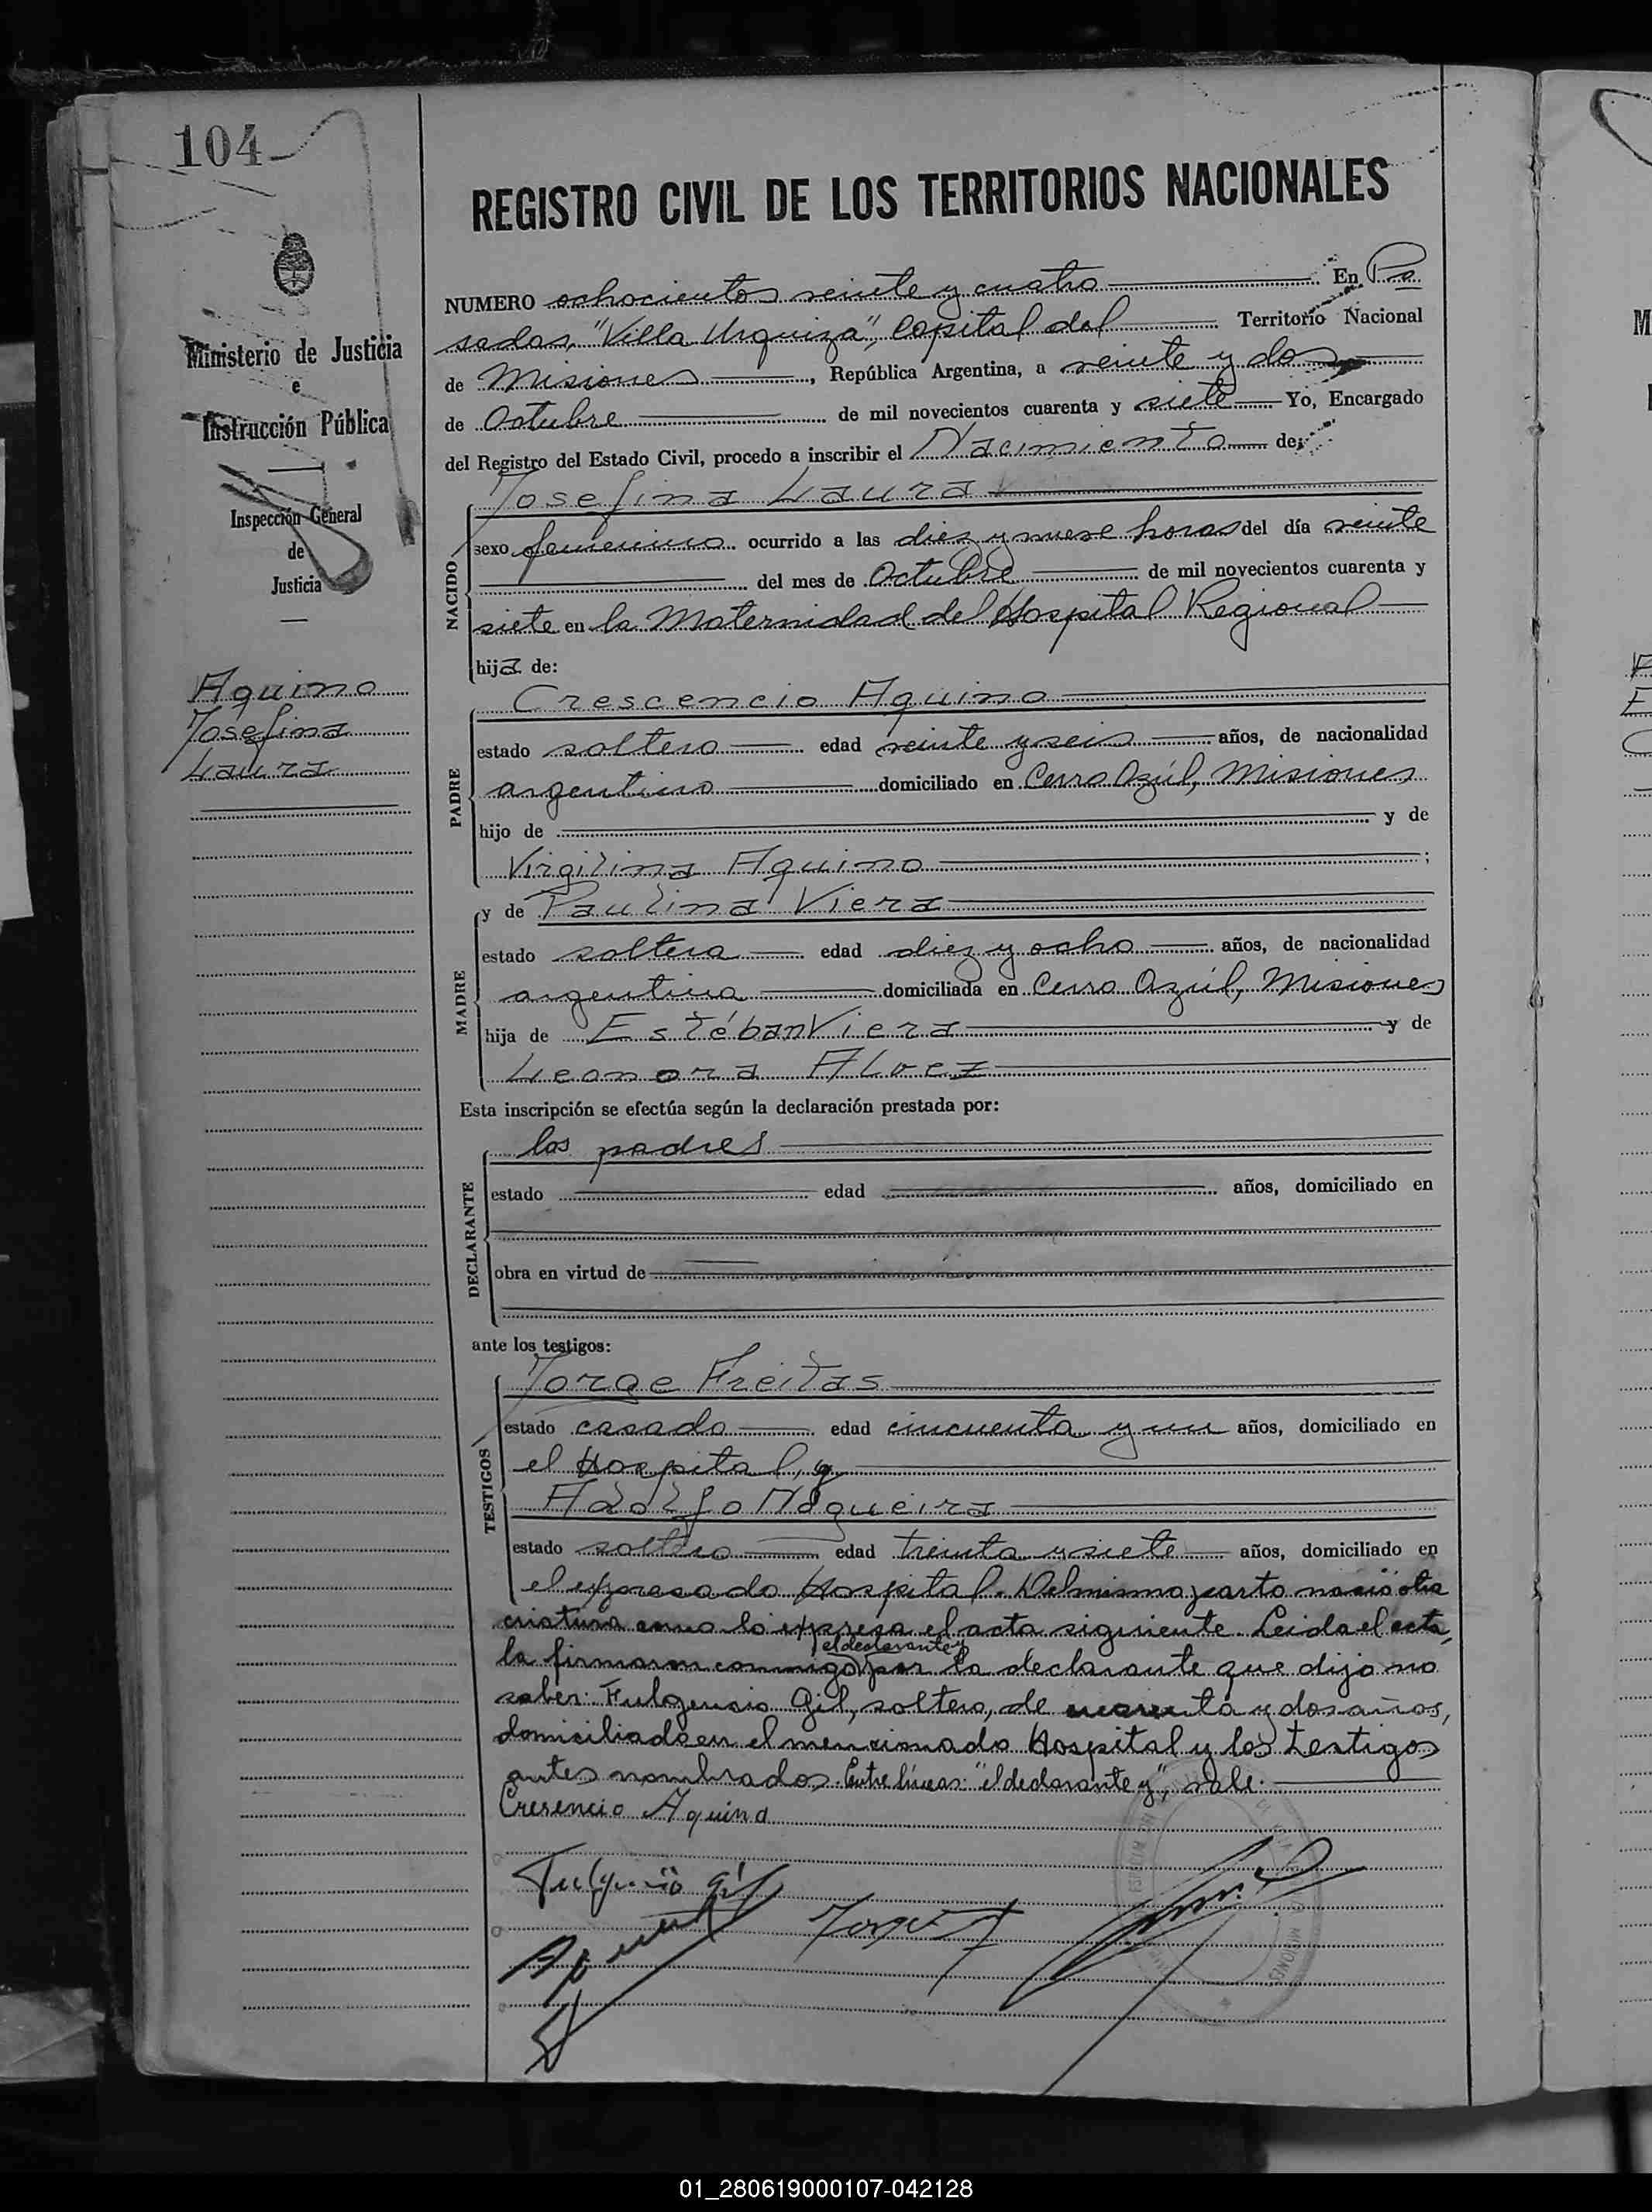 104
REGISTRO CIVIL DE LOS TERRITORIOS NACIONALES
Ministerio de Justicia
e
Instrucción Pública
Inspección General
de
Justicia
Aquino
Josefina
Laura
NUMERO ochocientos veinte y cuatro En Po
sadas, "Villa Urquiza", Capital del Territorio Nacional
de Misiones, República Argentina, a veinte y dos
de Octubre de mil novecientos cuarenta y siete Yo, Encargado
del Registro del Estado Civil, procedo a inscribir el Nacimiento de:
Josefina Laura
NACIDO
sexo femenino ocurrido a las diez y nueve horas del día veinte
del mes de Octubre de mil novecientos cuarenta y
siete en la Maternidad del Hospital Regional
hija de:
PADRE
Crescencio Aquino
estado soltero edad veinte y seis años, de nacionalidad
argentino domiciliado en Cerro Azúl, Misiones
hijo de y de
Virgilina Aquino ;
MADRE
y de Paulina Viera
estado soltera edad diez y ocho años, de nacionalidad
argentina domiciliada en Cerro Azúl, Misiones
hija de Estéban Viera y de
Leonora Alvez
Esta inscripción se efectúa según la declaración prestada por:
DECLARANTE
los padres
estado edad años, domiciliado en
obra en virtud de
ante los testigos:
TESTIGOS
Jorge Freitas
estado casado edad cincuenta y un años, domiciliado en
el Hospital, y
Adolfo Nogueira
estado soltero edad treinta y siete años, domiciliado en
el expresado Hospital. Del mismo parto nació otra
criatura como lo expresa el acta siguiente. Leida el acta,
el declarante y
la firmaron conmigo por la declarante que dijo no
saber: Fulgencio Gil, soltero, de cuarenta y dos años,
domiciliado en el mencionado Hospital y los testigos
antes nombrados. Entre líneas: "el declarante y", vale.
Cresencio Aquino
Fulgencio Gil
MISIONES
01_280619000107-042128